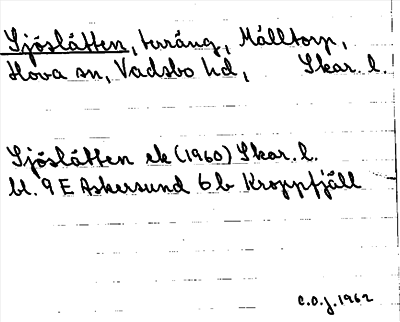 Sjöslåtten, turäng, Målltorp,
Hova sn, Vadsbo hd, Skar. l.
Sjöslåtten ek (1960) Skar. l.
bl. 9 E Askersund 6 b Kroppfjäll
C.O.J. 1962